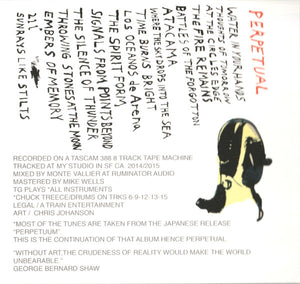 PERPETUAL
WATER IN YOUR HANDS
THOUGHTS OF TOMORROW
AT THE CIRCLES EDGE
THE FIRE REMAIN
BATTLES OF THE FORGOTTON
ATACAMA
WHERE THE SKY DROPS INTO THE SEA
LOS OCEANOS de Arena
TIME BURNS BRIGHT
THE SPIRIT FORM
SIGNALS FROM POINTS BEYOND
THE SILENCE OF THUNDER
THROWING STONES AT THE MOON
EMBERS OF MEMORY
211
SUNRAYS LIKE STILTS
RECORDED ON A TASCAM 388 8 TRACK TAPE MACHINE
TRACKED AT MY STUDIO IN SF CA. 2014/2015
MIXED BY MONTE VALLIER AT RUMINATOR AUDIO
MASTERED BY MIKE WELLS
TG PLAYS *ALL INSTRUMENTS
*CHUCK TREECE/DRUMS ON TRKS 6-9-12-13-15
LEGAL / A TRAIN ENTERTAINMENT
ART / CHRIS JOHANSON
"MOST OF THE TUNES ARE TAKEN FROM THE JAPANESE RELEASE
"PERPETUUM".
THIS IS THE CONTINUATION OF THAT ALBUM HENCE PERPETUAL
"WITHOUT ART,THE CRUDENESS OF REALITY WOULD MAKE THE WORLD
UNBEARABLE."
GEORGE BERNARD SHAW